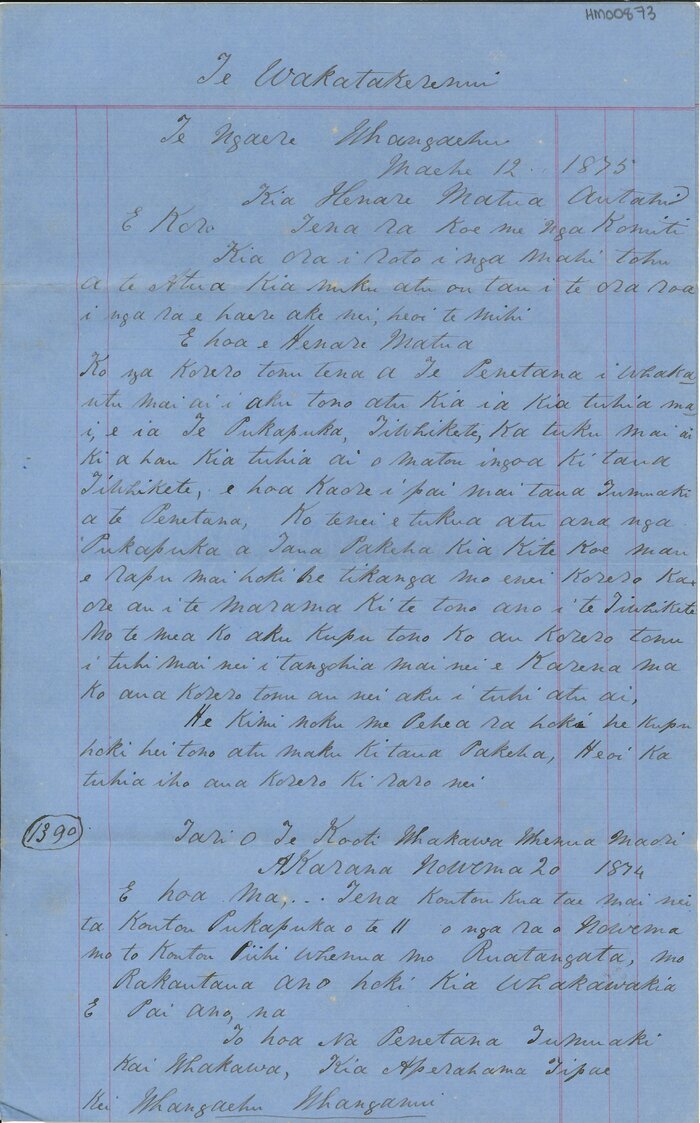 HM00873
Te Wakatakerenui
Te Ngaere Whangaehu
Maehe 12.. 1875
Kia Henare Matua Autahi
E Koro Tena ra Koe me nga Komiti
Kia ora i roto i nga mahi tohu
a te Atua Kia nuku atu ou tau i te ora roa
i nga ra e haere ake nei, heoi te mihi
E hoa e Henare Matua
Ko nga Korero tonu tena a Te Penetana i whaka
utu mai ai i aku tono atu Kia ia Kia tuhia ma
i, e ia Te Pukapuka, Tiwhikete, Ka tuku mai ai
Ki a hau Kia tuhia ai o matou ingoa Ki taua
Tiwhikete, e hoa Kaore i pai mai taua Tumuaki
a te Penetana, Ko tenei e tukua atu ana nga
Pukapuka a Taua Pakeha Kia Kite Koe mau
e rapu mai hoki he tikanga mo enei Korero Ka
ore au i te marama Ki te tono ano i te Tiwhikete
No te mea Ko aku Kupu tono Ko au Korero tonu
i tuhi mai nei i tangohia mai nei e Karena ma
Ko aua Korero tonu au nei aku i tuhi atu ai,
He Kimi noku me Pehea ra hoki he kupu
hoki hei tono atu maku Ki taua Pakeha, Heoi Ka
tuhia iho aua Korero Ki raro nei
1390
Tari o Te Kooti Whakawa Whenua Maori
AKarana Nowema 20 1874
E hoa Ma... Tena Koutou Kua tae mai nei
ta Koutou Pukapuka o te 11 o nga ra o Nowema
mo to Koutou Piihi Whenua mo Ruatangata, mo
Rakautaua ano hoki Kia Whakawakia
E Pai ano, na
To hoa Na Penetana Tumuaki
Kai Whakawa, Kia Aperahama Tipae
Kei Whangaehu Whanganui